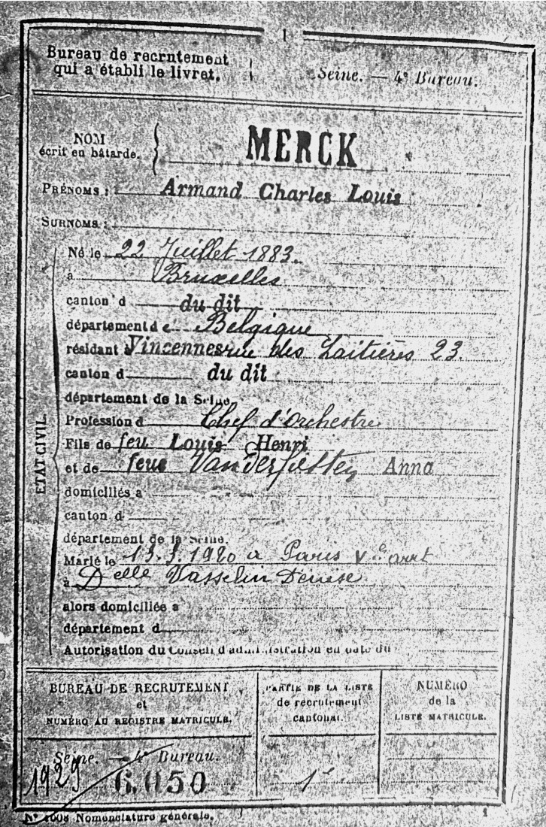 1
Bureau de recrutement
qui a établi le livret.
Seine. — 4e Bureau.
NOM
écrit en bâtarde.
MERCK
PRÉNOMS : Armand Charles Louis
SURNOMS :
ÉTAT CIVIL.
Né le 22 Juillet 1883
à Bruxelles
canton d du dit
département de Belgique
résidant à Vincennes rue des Laitières 23
canton d du dit
département de la Seine,
Profession d Chef d'Orchestre
Fils de feu Louis Henri
et de feue Anna
domiciliés à
canton d
département de la Seine.
Marié le 1920 à Paris Ve arrt
à Delle Vasselin Denise
alors domiciliée à
département d
Autorisation du Conseil d'administration en date du
BUREAU DE RECRUTEMENT
et
NUMÉRO AU REGISTRE MATRICULE.
PARTIE DE LA LISTE
de recrutement
cantonal.
NUMÉRO
de la
LISTE MATRICULE.
Seine. — 4e Bureau.
1929
6.050
1e
N° 1008 Nomenclature générale.
1